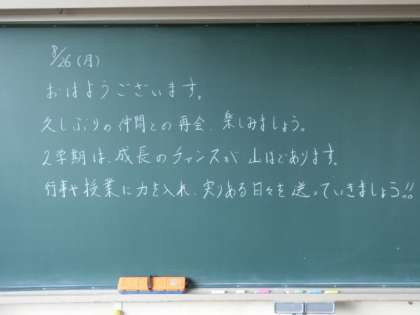 8/26(月)
おはようございます。
久しぶりの仲間との再会、楽しみましょう。
2学期は、成長のチャンスが山ほどあります。
行事や授業に力を入れ、実りある日々を送っていきましょう!!